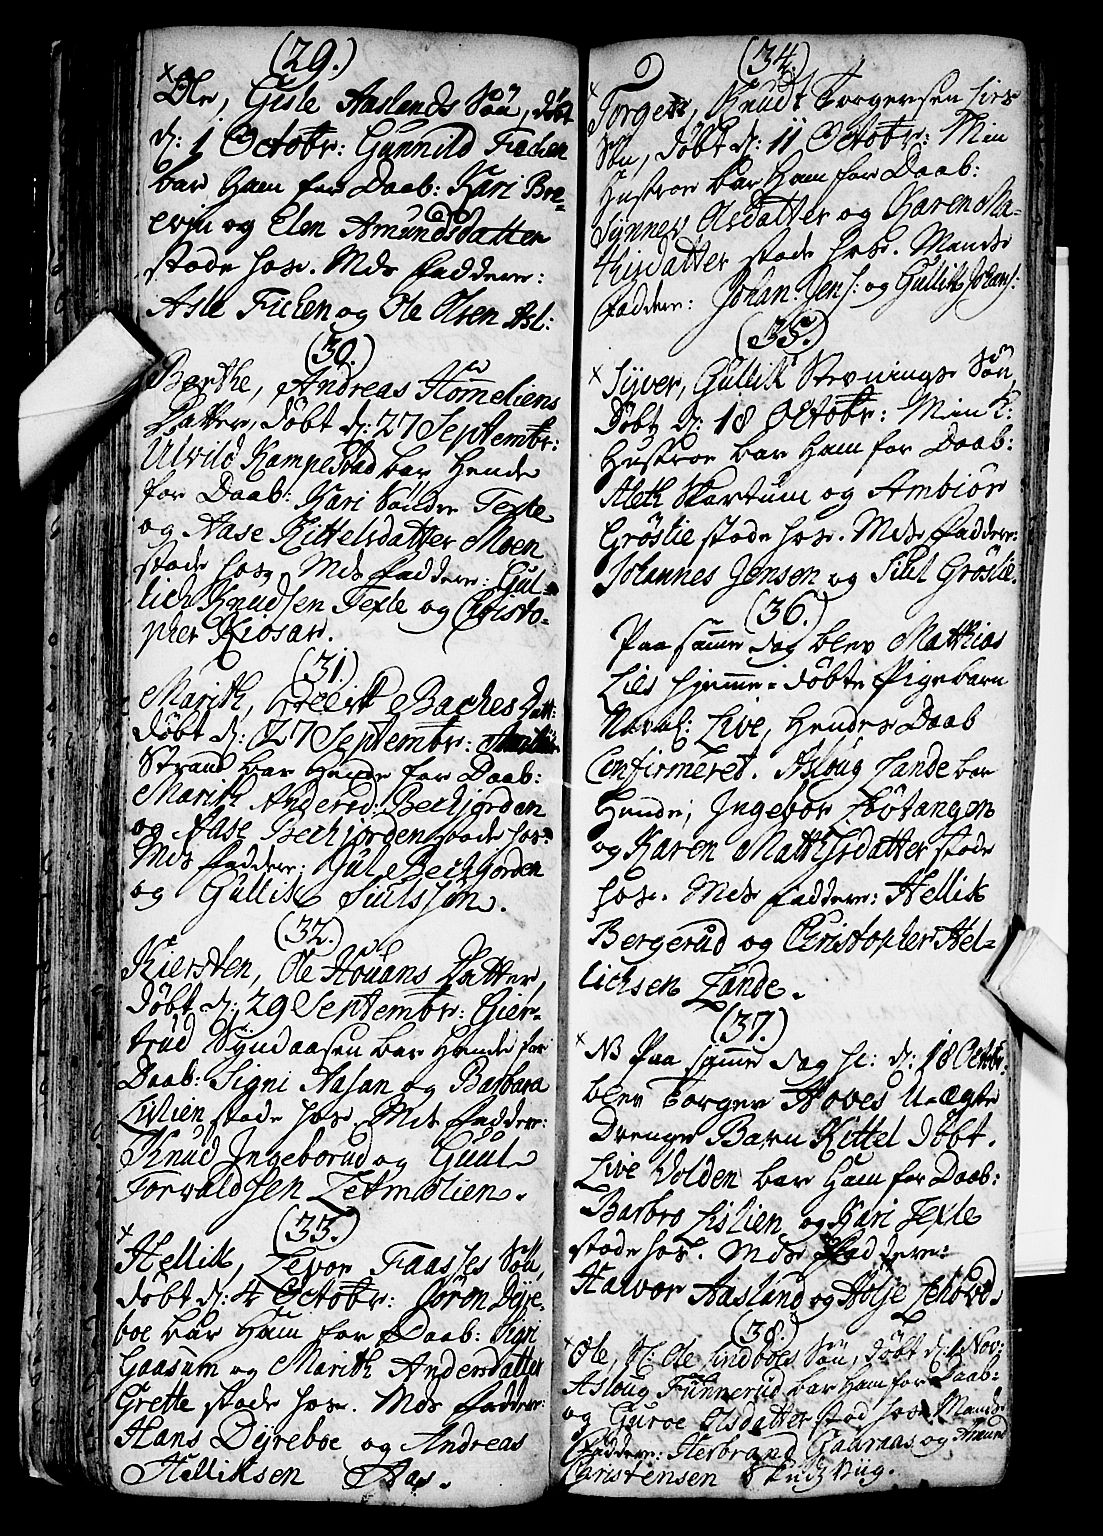 (29.)
Ole, Gisle Aaslands Søn, døbt
d: 1 Octobr: Gunnild Fichen
bar Ham for Daab: Kari Bre-
evju og Elen Amundsdatter
stode hos. Mds Faddere:
Asle Fichen og Ole Olsen Asl:
(30.)
Berthe, Andreas Homeliens
Datter, døbt d: 27 Septembr:
Ulvild Kampestad bar Hende
for Daab: Kari Søndre Texle
og Aase Kittelsdatter Moen
stode hos, Mds Faddere: Gul-
lich Knudsen Texle og Christo-
pher Kiosar.
(31.)
Marith, Baches Datt:
døbt d: 27 Septembr:
Strand bar Hende for Daab:
Marith Andersd: Bechjorden
og Aase Bechjorden stode hos
Mds Faddere: Jul Bechjorden
og Gullik Siulssøn.
(32.)
Kiersten, Ole Houans Datter,
døbt d: 29 Septembr: Gier-
trud Syndaasen bar Hende for
Daab: Signi Aasan og Barbara
Lislien stode hos. Mds Faddere:
Knud Ingeborud og Guul
Torvaldsen Letmolien.
(33.)
Hellik, Levor Faasses Søn,
døbt d: 4 Octobr: Joren Dyre-
boe bar Ham for Daab: Sigri
Gaasum og Marith Andersdatter
Grette stode hos. Mds Faddere:
Hans Dyreboe og Andreas
Helliksen Aas.
(34.)
Torger, Knudt Torgersen
Søn, døbt d: 11 Octobr: Min
Hustroe bar Ham for Daab:
Synnev Olsdatter og Karen Ma-
thisdatter stode hos. Mands
Faddere: Johan: Jens: og Gullik Johans:
(35.)
Syver, Gullik Stevnings Søn,
Døbt d: 18 Octobr: Min K:
Hustroe bar Ham for Daab:
Aleth Skartum og Ambiør
Grøslie stode hos. Mds Faddere:
Johannes Jensen og Siul Grøslie.
(36.)
Paa samme dag blev Matthias
Lies hjemme-døbte Pigebarn
Navnl: Live, Hendes Daab
Confirmeret. Asloug Lande bar
Hende; Ingebor Fløtangen
og Karen Mathisdatter stode
hos. Mds Faddere: Hellik
Bergerud og Christopher Hel-
lichsen Lande.
(37.)
NB Paa samme dag sc: d: 18 Octobr:
blev Torger Hoves Uægte
Drenge Barn Kittel døbt.
Live Volden bar Ham for Daab:
Barbro Lislien og Kari Texle
stode hos. Mds Faddere:
Halvor Aaslund og Holje Lehovd.
(38.)
Ole, Ole Lindbols Søn, døbt d: 1 Nov:
Asloug Funnerud bar Ham for Daab:
og Guroe Olsdatter stod hos. Mands
Faddere: Herbrand Gauraas og Amund
Christensen